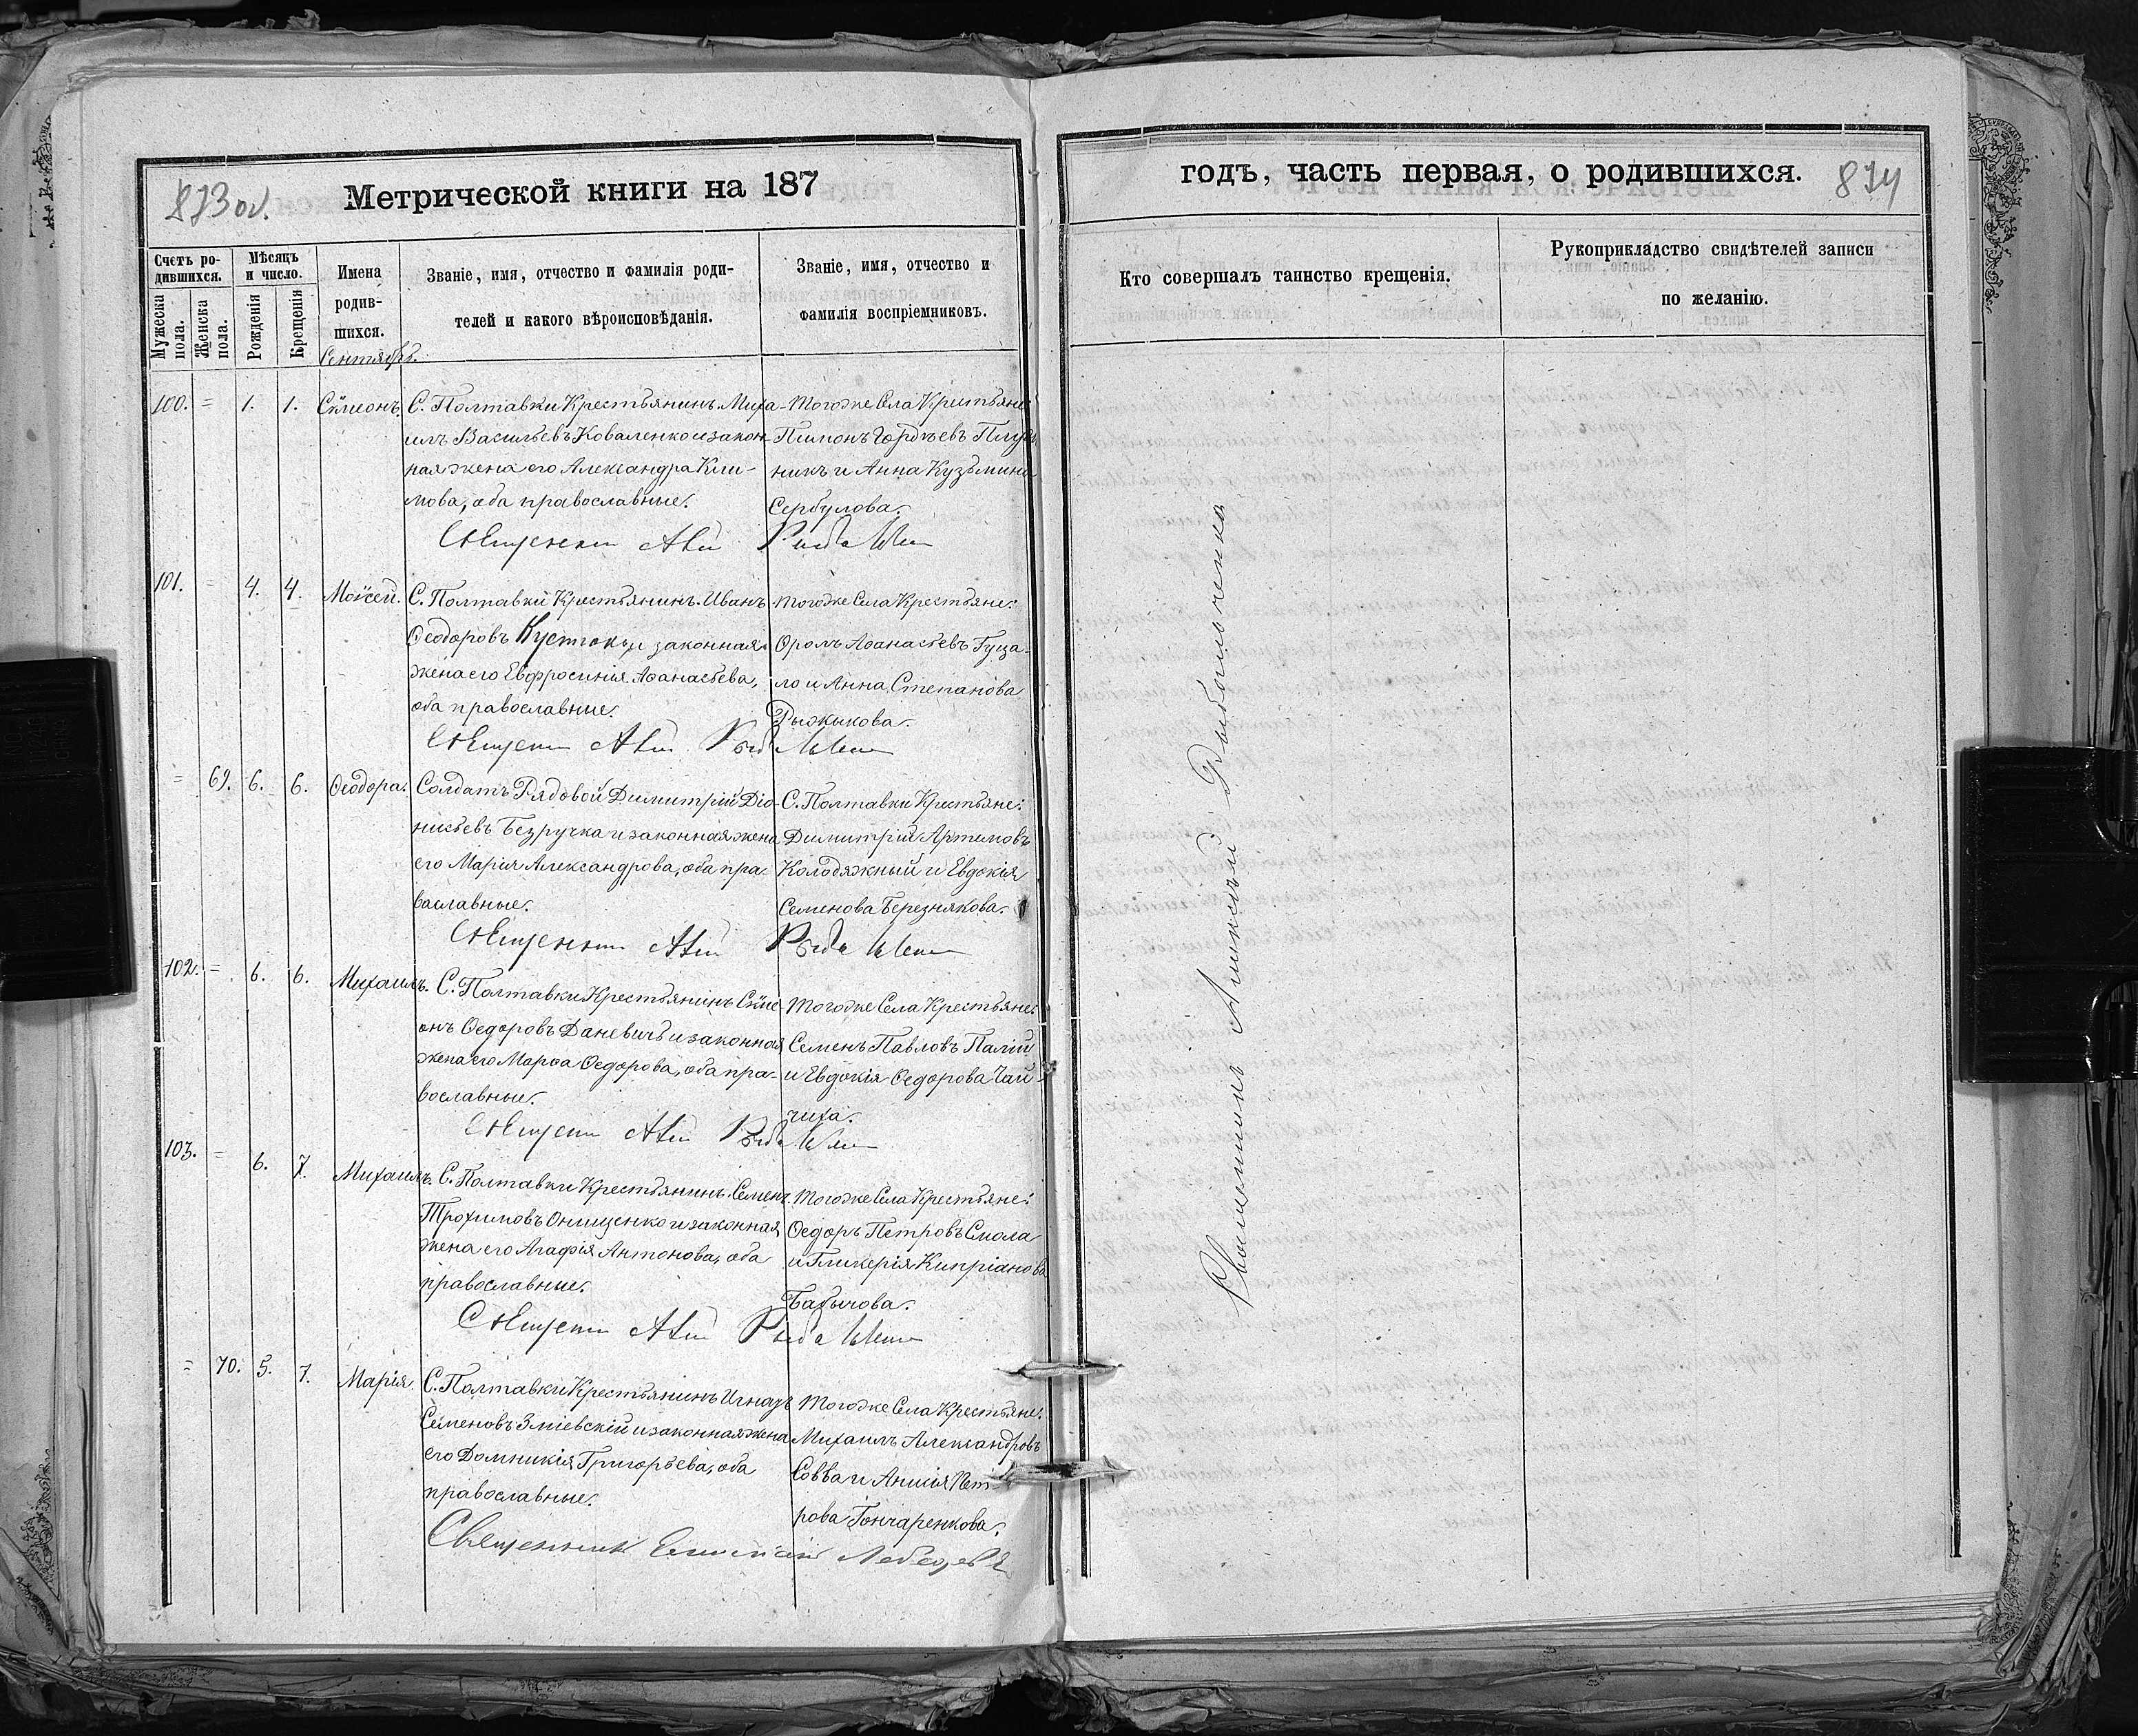 873 об.
Метрической книги на 187
Счетъ ро-
дившихся.
Мужеска
пола.
Женска
пола.
Мѣсяцъ
и число.
Рожденія
Крещенія
Имена
родив-
шихся.
Званіе, имя, отчество и фамилія роди-
телей и какого вѣроисповѣданія.
Званіе, имя, отчество и
фамилія воспріемниковъ.
Сентябрь.
100. = 1. 1. Сѵмеонъ
С. Полтавки Крестьянинъ Миха-
илъ Васильевъ Коваленко и закон-
ная жена его Александра Кли-
мова, оба православные.
Тогоже Села Крестьяне:
Пимонъ Гордѣевъ
никъ и Анна Кузьмина
Сербулова.
101. = 4. 4. Моѵсей.
С. Полтавки Крестьянинъ Иванъ
Ѳеодоровъ и законная
жена его Евфросинія Аѳанасьева,
оба православные.
Тогоже Села Крестьяне:
Фролъ Аѳанасьевъ Гуца-
ло и Анна Степанова
Рыжкова.
= 69. 6. 6. Ѳеодора.
Солдатъ Рядовой Димитрій Діо-
нисьевъ Безручка и законная жена
его Марія Александрова, оба пра-
вославные.
С. Полтавки Крестьяне:
Димитрій Артемовъ
Колодяжный и Евдокія
Семенова Березнякова.
102. = 6. 6. Михаилъ.
С. Полтавки Крестьянинъ Сѵме-
онъ Ѳедоровъ Даневичъ и законная
жена его Марѳа Ѳедорова, оба пра-
вославные.
Тогоже Села Крестьяне:
Семенъ Павловъ Палій
и Евдокія Ѳедорова Чай-
чиха.
103. = 6. 7. Михаилъ.
С. Полтавки Крестьянинъ Семенъ
Трофимовъ Онищенко и законная
жена его Агафія Антонова, оба
православные.
Тогоже Села Крестьяне:
Ѳедоръ Петровъ Смола
и Гликерія Кипріанова
= 70. 5. 7. Марія.
С. Полтавки Крестьянинъ Игнатъ
Семеновъ Зміевскій и законная жена
его Домникія Григорьева, оба
православные.
Тогоже Села Крестьяне:
Михаилъ Александровъ
Савва и Анисія Пет-
рова Гончаренкова.
Священникъ Лебедевъ
годъ, часть первая, о родившихся.
874
Кто совершалъ таинство крещенія.
Рукоприкладство свидѣтелей записи
по желанію.
Священникъ Алексѣй Рыбальченко